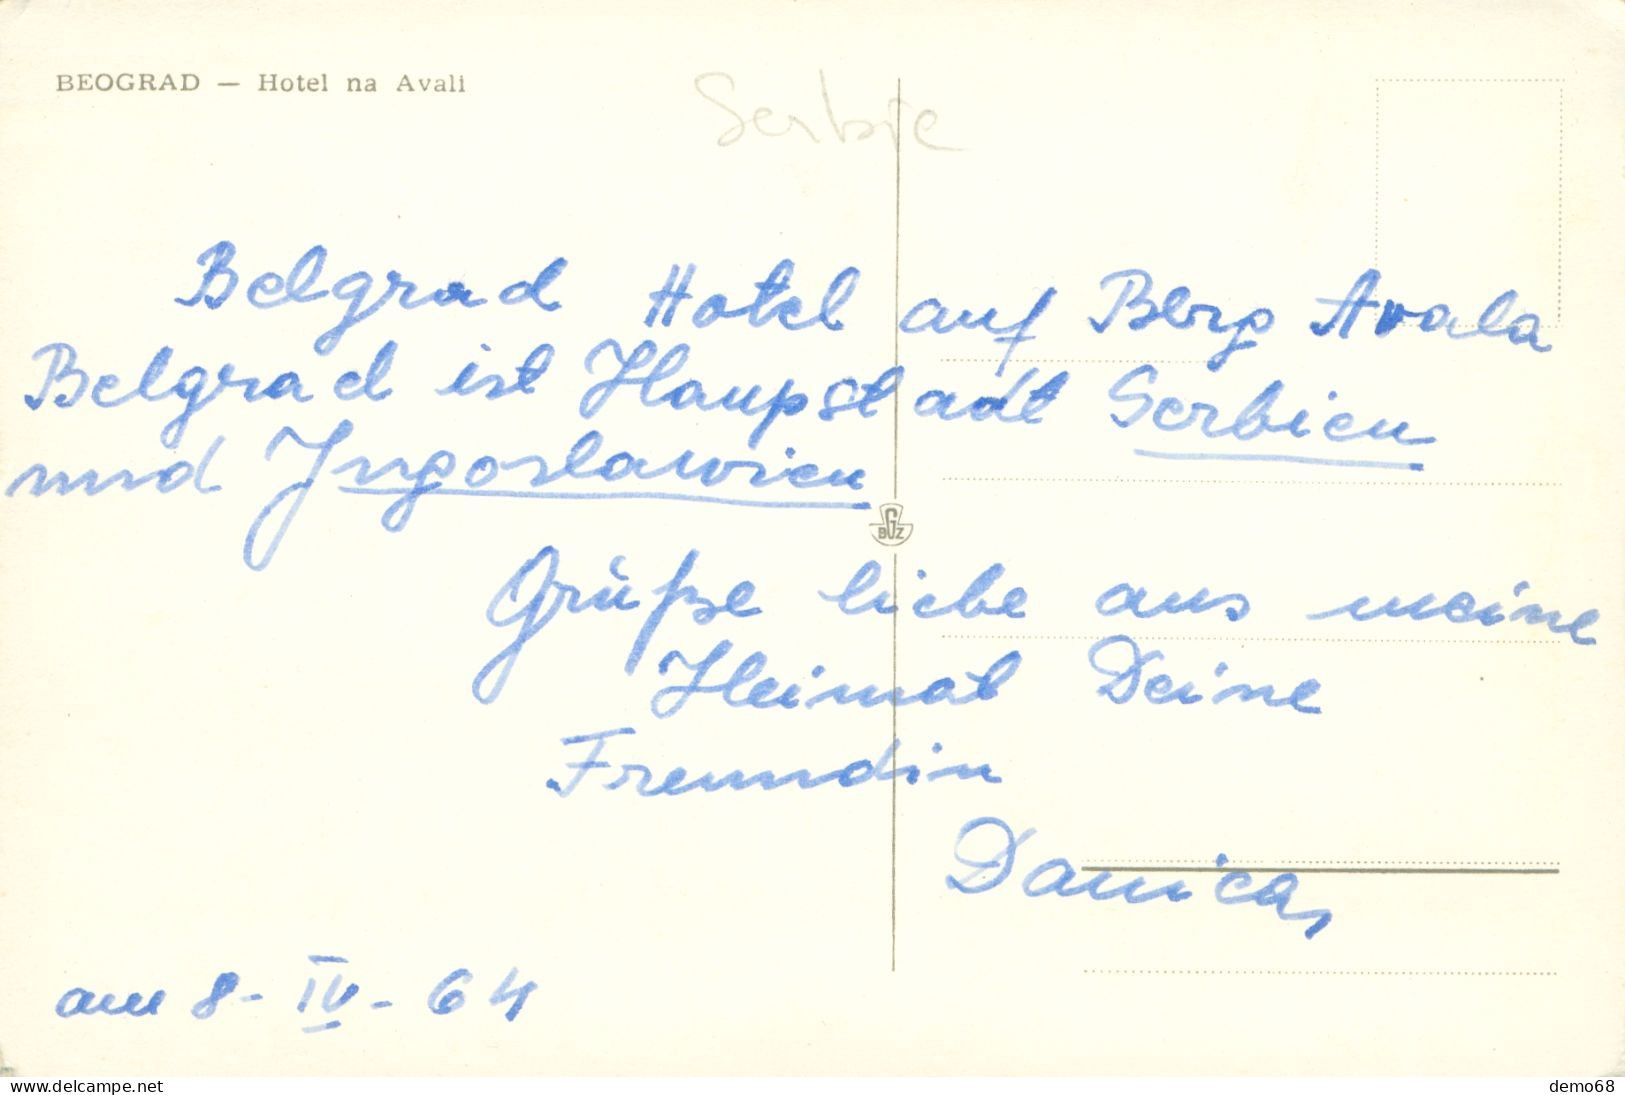 BEOGRAD — Hotel na Avali
Serbie
Belgrad Hotel auf Berg Avala
Belgrad ist Haupstadt Serbien
und Jugoslawien
BGZ
Grüße liebe aus meine
Heimat Deine
Freundin
Danica,
am 8- IV - 64
www.delcampe.net
demo68